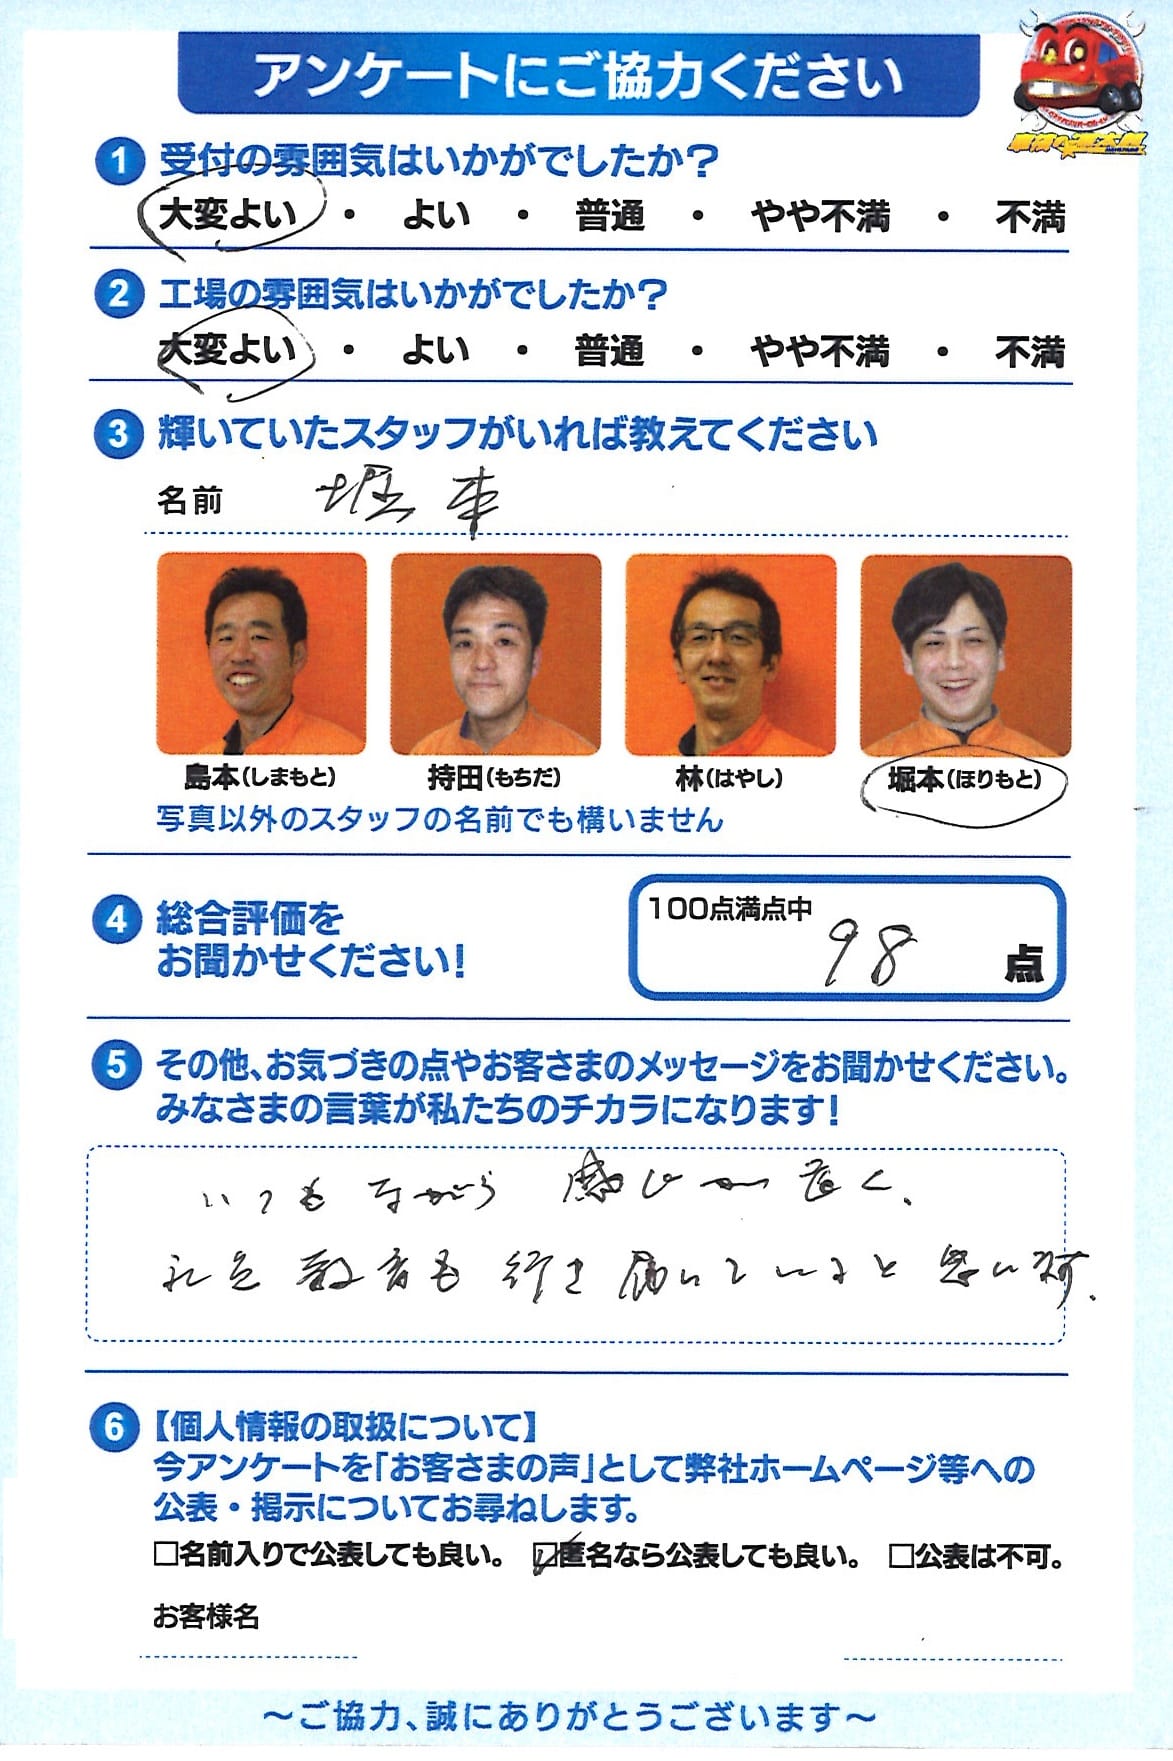 アンケートにご協力ください
1 受付の雰囲気はいかがでしたか?
大変よい ・ よい ・ 普通 ・ やや不満 ・ 不満
2 工場の雰囲気はいかがでしたか?
大変よい ・ よい ・ 普通 ・ やや不満 ・ 不満
3 輝いていたスタッフがいれば教えてください
名前 堀本
島本(しまもと) 持田(もちだ) 林(はやし) 堀本(ほりもと)
写真以外のスタッフの名前でも構いません
4 総合評価を
お聞かせください!
100点満点中
98 点
5 その他、お気づきの点やお客さまのメッセージをお聞かせください。
みなさまの言葉が私たちのチカラになります!
いつもながら 感じが良く、
社員教育も行き届いていると思います.
6 【個人情報の取扱について】
今アンケートを「お客さまの声」として弊社ホームページ等への
公表・掲示についてお尋ねします。
□名前入りで公表しても良い。 ☑匿名なら公表しても良い。 □公表は不可。
お客様名
〜ご協力、誠にありがとうございます〜